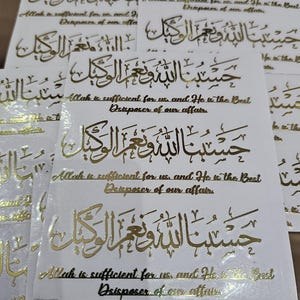 Allah is sufficient for us and He is the Best
Disposer of our affair.
حسبنا الله ونعم الوكيل
Allah is sufficient for us, and He is the Best
Disposer of our affair.
حسبنا الله ونعم الوكيل
Allah is sufficient for us, and He is the Best
Disposer of our affair.
حسبنا الله ونعم الوكيل
Allah is sufficient for us, and He is the Best
Disposer of our affair.